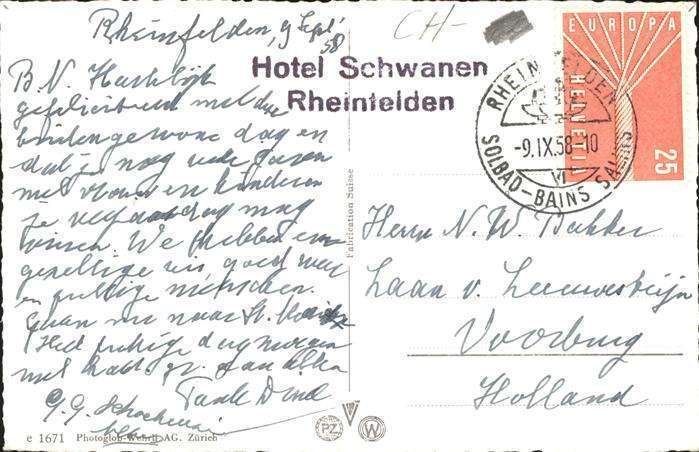 Rheinfelden, 9 Sept.
58
CH-
Hotel Schwanen
Rheinfelden
EUROPA
HELVETIA
25
RHEINFELDEN
-9.IX.58-10
VI
SOLBAD-BAINS SALINS
B.N. Hartelijk
gefeliciteerd met deze
buitengewone dag en
dat je nog vele jaren
met vrouw en kinderen
je verjaardag mag
vieren. We hebben een
gezellige reis, goed weer
en prettige menschen.
Gaan nu naar St.
Heel prettige dag morgen
met hart. gr. aan allen
Tante
G.G.
Fabrication Suisse
Herrn N. W. Bakker
Laan v. Leeuwesteijn
Voorburg
Holland
PZ
W
e 1671 Photoglob-Wehrli AG. Zürich